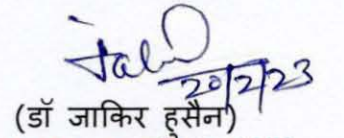 20/2/23
(डॉ जाकिर हुसैन)